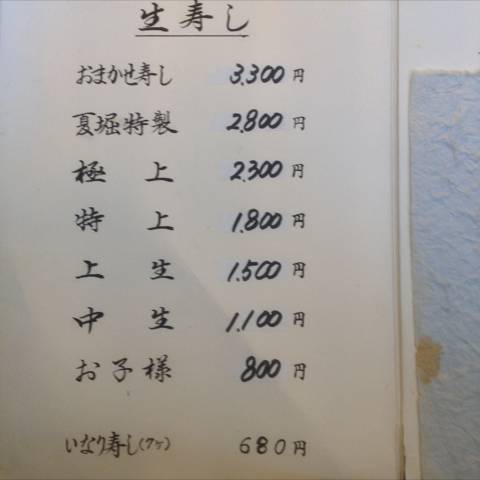 生寿し
おまかせ寿し 3,300円
夏堀特製 2,800円
極上 2,300円
特上 1,800円
上生 1,500円
中生 1,100円
お子様 800円
いなり寿し(7ヶ) 680円